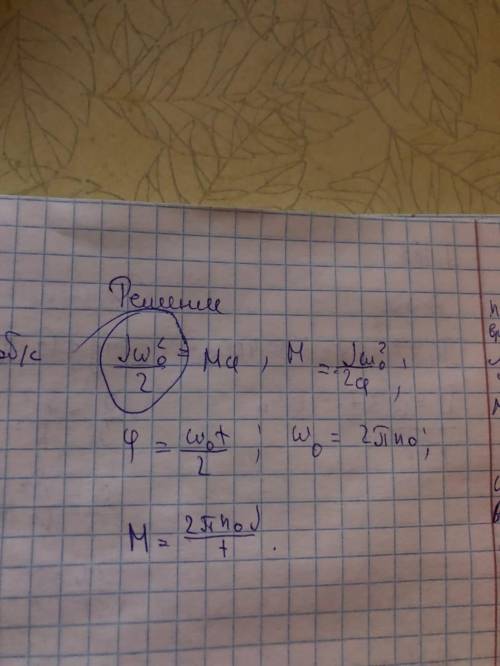 Решение
об/с
Jω₀²/2 = Mφ, M = Jω₀²/2φ;
φ = ω₀t/2; ω₀ = 2πn₀;
M = 2πn₀J/t.